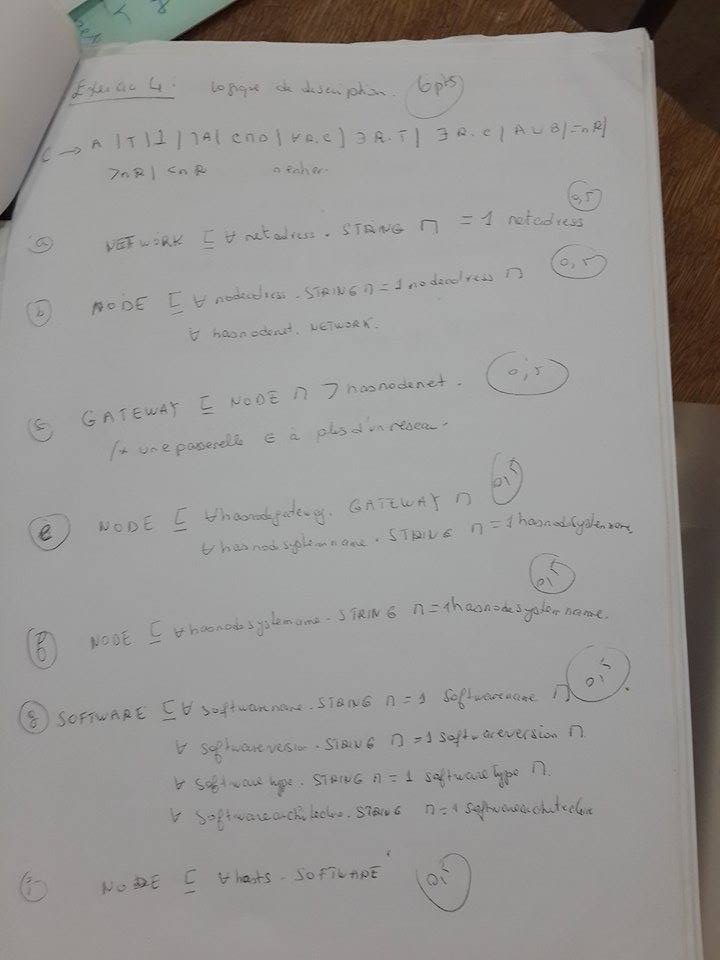 Exercice 4: logique de description. 6pts
C → A | T | ⊥ | ¬A | C ⊓ D | ∀R.C | ∃R.T | ∃R.C | A ⊔ B | =nR |
>nR | <nR n entier.
a NETWORK ⊑ ∀netadress.STRING ⊓ =1 netadress 0,5
b NODE ⊑ ∀nodeadress.STRING ⊓ =1 nodeadress ⊓ 0,5
∀hasnodenet.NETWORK.
c GATEWAY ⊑ NODE ⊓ > hasnodenet. 0,5
/* une passerelle ∈ à plus d'un réseau.
e NODE ⊑ ∀hasnodegateway. GATEWAY ⊓ 0,5
∀hasnodsystemname.STRING ⊓ =1 hasnodsystemname
f NODE ⊑ ∀hasnodesystemame.STRING ⊓ =1hasnodesystemname. 0,5
g SOFTWARE ⊑ ∀softwarename.STRING ⊓ =1 softwarename ⊓ 0,5
∀softwareversion.STRING ⊓ =1 softwareversion ⊓
∀software type.STRING ⊓ =1 software Type ⊓
∀Softwarearchitecture.STRING ⊓ =1 softwarearchitecture
i NODE ⊑ ∀hosts.SOFTWARE 0,5